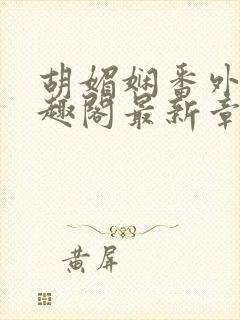 胡媚娴番外
趣阁最新章
黄屏